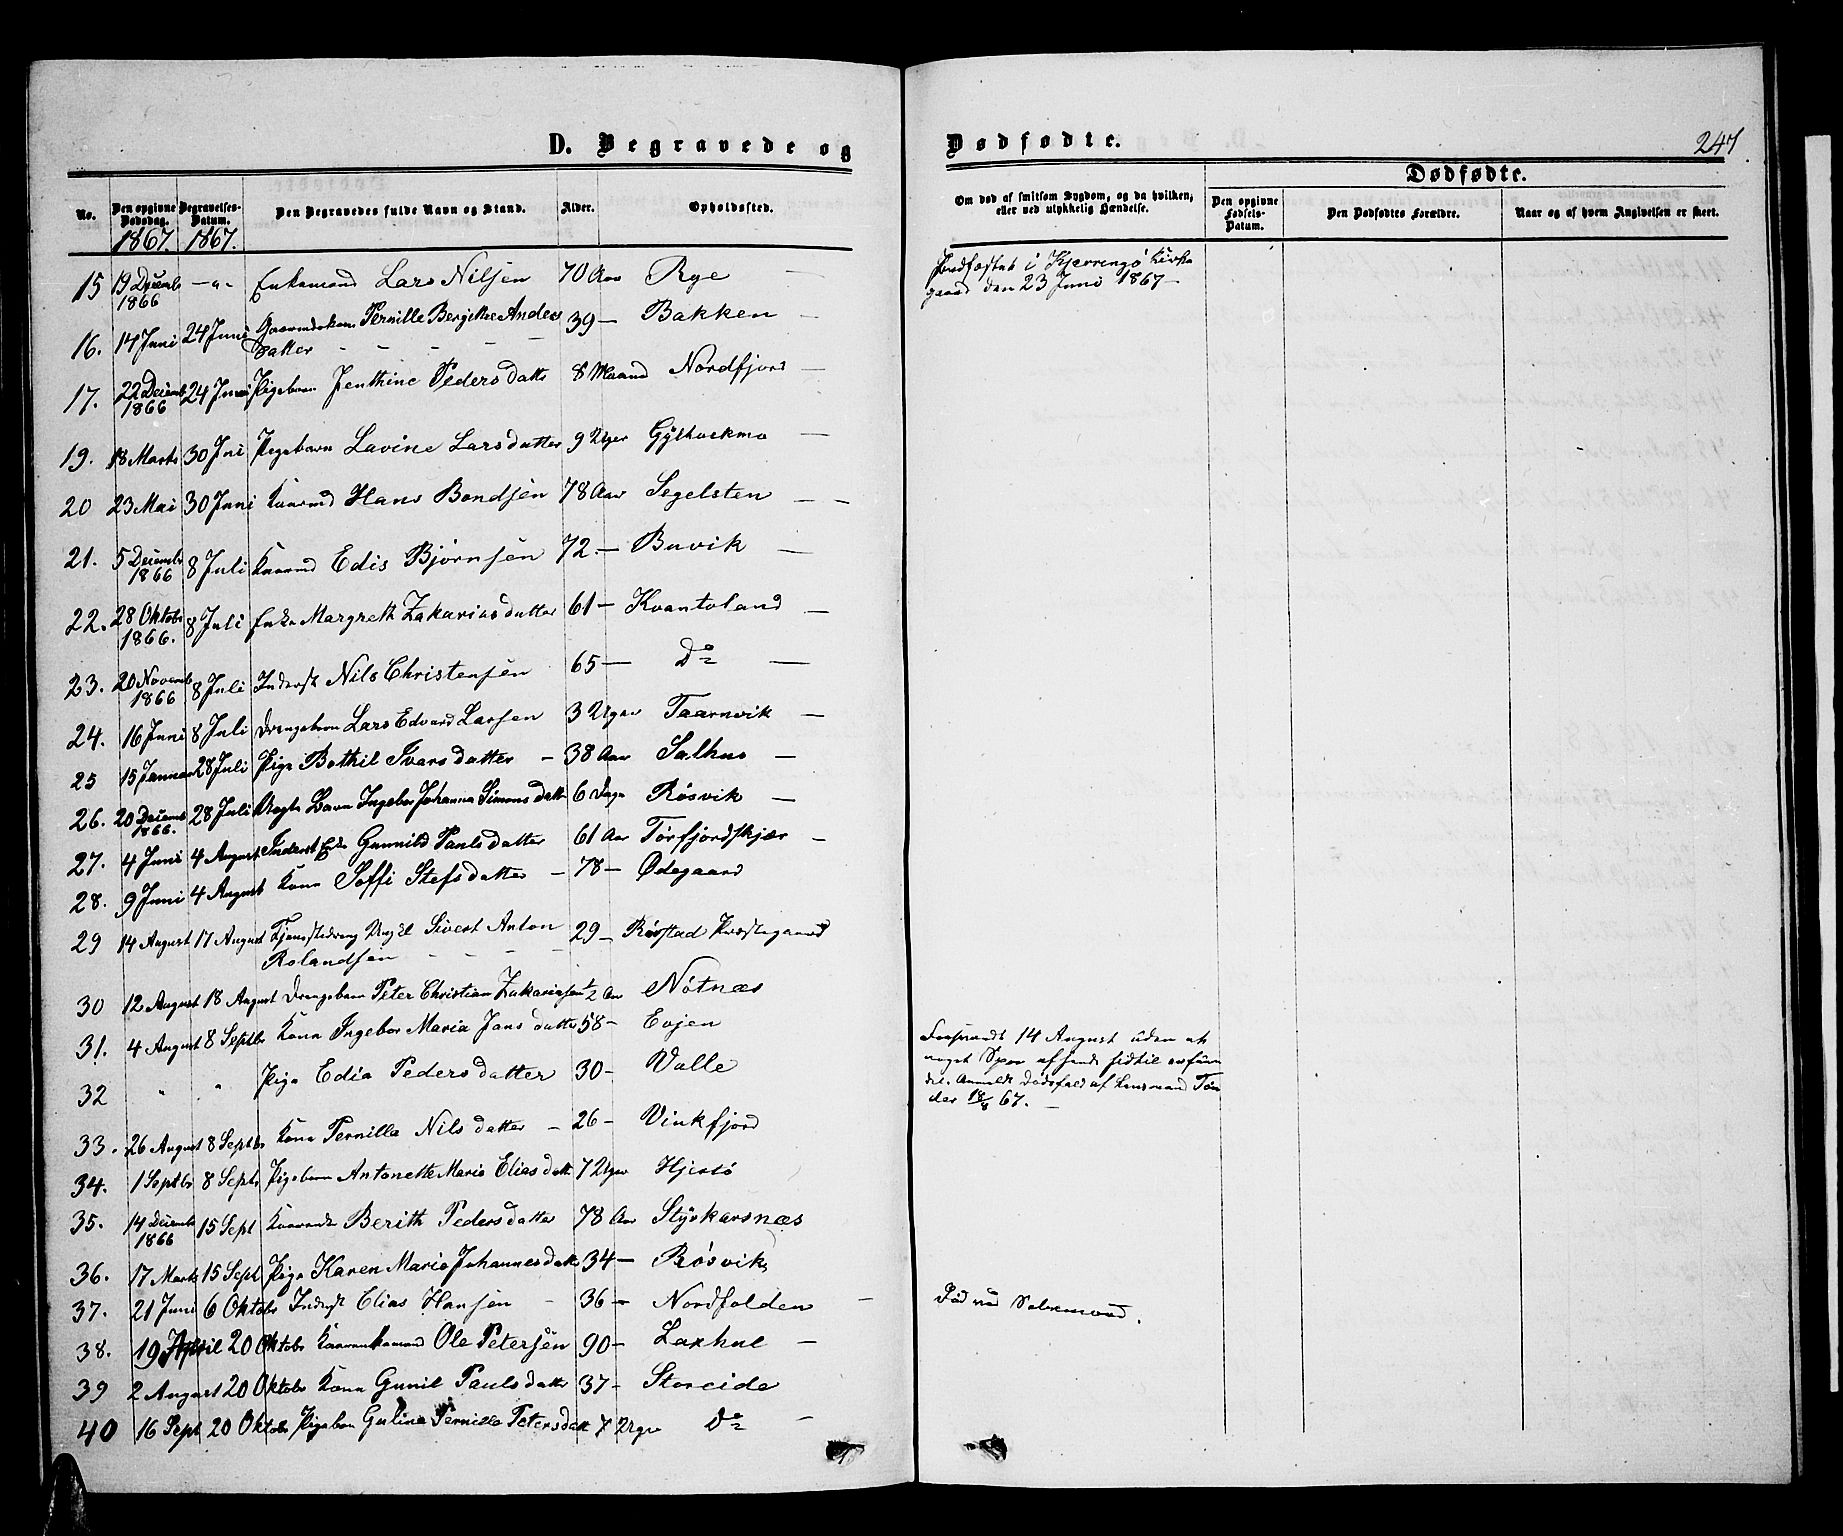 D. Begravede og
Dødfødte.
247.
No.
Den opgivne Dødsdag.
1867.
Begravelses-Datum.
1867.
Den Begravedes fulde Navn og Stand.
Alder.
Opholdssted.
Om død af smitsom Sygdom, og da hvilken; eller ved ulykkelig Hændelse.
Dødfødte.
Den opgivne Fødsels-Datum.
Den Dødfødtes Forældre.
Naar og af hvem Angivelsen er skeet.
15 19 Decemb 1866 —"— Enkemand Lars Nilsen 70 Aar Rye — Jordfæstet i Kjerringø Kirke
gaard den 23 Juni 1867 —
16. 14 Juni 24 Juni Gaardmdskone Pernille Bergitte Anders
datter - - - - 39 — Bakken —
17. 22 Decemb 1866 24 Juni Pigebarn Jenthine Pedersdatte 8 Maaned Nordfjord —
19. 18 Marts 30 Jni Pigebarn Lavine Larsdatter 9 Uger Gylhockmo —
20 23 Mai 30 Juni Kaarmd Hans Bendsen 78 Aar Segelsten — —
21. 5 Decemb 1866 8 Juli Kaarmd Edis Bjørnsen 72. — Buvik —
22. 28 Oktobr 1866. 8 Juli Enke Margreth Zakariasdatter 61 — Kvantoland —
23. 20 Novemb 1866 8 Juli Inderst Nils Christensen 65 — Do —
24. 16 Juni 8 Juli Drengebarn Lars Edvard Larsen 3 Uger Taarnvik —
25 15 Januar 28 Juli Pige Bothil Ivarsdatter — 38 Aar Salhus —
26. 20 Decemb 1866. 28 Juli Uægte Barn Ingebor Johanna Simonsdatt 6 Dage Røsvik —
27. 4 Juni 4 August Inderst Enke Gunnild Paulsdatter 61 Aar Tørfjordskjær —
28. 9 Juni 4 August Kone Soffi Stefsdatter — 78 — Ødegaard
29 14 August 17 August Tjenestedreng Ungkl Sivert Anton
Rolandsen - - - 29 — Rørstad Præstegaard
30 12 August 18 August Drengebarn Peter Christian Zakariasen ½ Aar Nøtnæs
31. 4 August 8 Septbr Kone Ingebor Maria Jansdatter 58 — Evjen
32 " " Pige Edia Pedersdatter 30 — Valle
Forsvandt 14 August uden at
noget Spor af hende hidtil er fun
det. Anmeldt Dødsfald af Lensmand Tøn
der 18/8 67. —
33. 26 August 8 Septbr Kone Pernille Nilsdatter — 26 — Vinkfjord
34. 1 Septbr 8 Septb Pigebarn Antonette Marie Eliasdatt 7 Uger Hjertø
35. 14 Decemb 1866 15 Sept Kaarenke Berith Pedersdatter 78 Aar Styrkarsnæs
36. 17 Marts 15 Sept Pige Karen Marie Johannesdatt 34 — Røsvik
37. 21 Juni 6 Oktobr Inderst Elias Hansen — 36 — Nordfolden —
Død ved Selvmord.
38. 19 April 20 Oktobr Kaarenkemand Ole Petersen 90 — Laxhul —
39 2 August 20 Oktobr Kone Gunil Paulsdatter 37 — Storeide
40 16 Sept 20 Oktobr Pigebarn Guline Pernille Petersdatt 7 Uger Do —